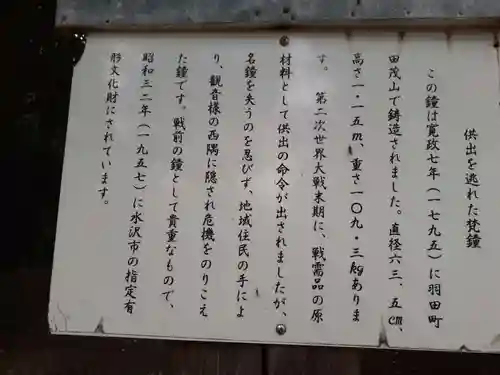 供出を逃れた梵鐘
この鐘は寛政七年（一七九五）に羽田町
田茂山で鋳造されました。直径六三、五㎝、
高さ一・一五m、重さ一〇九・三㎏ありま
す。　第二次世界大戦末期に、戦需品の原
材料として供出の命令が出されましたが、
名鐘を失うのを忍びず、地域住民の手によ
り、観音様の西隅に隠され危機をのりこえ
た鐘です。戦前の鐘として貴重なもので、
昭和三二年（一九五七）に水沢市の指定有
形文化財にされています。